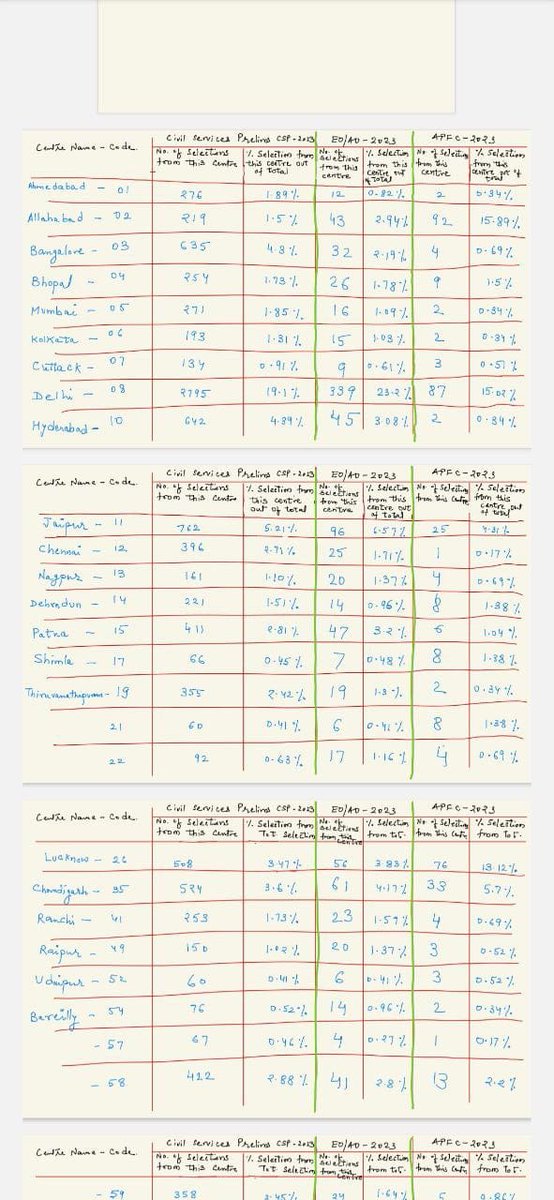 Civil Services Prelims CSP-2023 EO/AO-2023 APFC-2023
Centre Name - Code No. of Selections from this Centre % Selection from this centre out of Total No. of Selections from this centre % Selection from this centre out of Total No. of Selection from this centre % Selection from this centre out of total
Ahmedabad - 01 276 1.89% 12 0.82% 2 0.34%
Allahabad - 02 219 1.5% 43 2.94% 92 15.89%
Bangalore - 03 635 4.3% 32 2.19% 4 0.69%
Bhopal - 04 254 1.73% 26 1.78% 9 1.5%
Mumbai - 05 271 1.85% 16 1.09% 2 0.34%
Kolkata - 06 193 1.31% 15 1.03% 2 0.34%
Cuttack - 07 134 0.91% 9 0.61% 3 0.51%
Delhi - 08 2795 19.1% 339 23.2% 87 15.02%
Hyderabad - 10 642 4.39% 45 3.08% 2 0.34%
Centre Name - Code Civil Services Prelims CSP-2023 EO/AO-2023 APFC-2023
No. of Selections from this Centre % Selection from this centre out of total No. of Selections from this centre % Selection from this centre out of Total No. of Selection from this Centre % Selection from this centre out of total
Jaipur - 11 762 5.21% 96 6.57% 25 4.31%
Chennai - 12 396 2.71% 25 1.71% 1 0.17%
Nagpur - 13 161 1.10% 20 1.37% 4 0.69%
Dehradun - 14 221 1.51% 14 0.96% 8 1.38%
Patna - 15 411 2.81% 47 3.2% 6 1.04%
Shimla - 17 66 0.45% 7 0.48% 8 1.38%
19 355 2.42% 19 1.3% 2 0.34%
21 60 0.41% 6 0.41% 8 1.38%
22 92 0.63% 17 1.16% 4 0.69%
Centre Name - Code Civil Services Prelims CSP-2023 EO/AO-2023 APFC-2023
No. of Selections from this Centre % Selection from Tot Selection No. of Selections from this Centre % Selection from tot. No. of Selection from this Centre % Selection from Tot.
Lucknow - 26 508 3.47% 56 3.83% 76 13.12%
Chandigarh - 35 524 3.6% 61 4.17% 33 5.7%
Ranchi - 41 253 1.73% 23 1.57% 4 0.69%
Raipur - 49 150 1.02% 20 1.37% 3 0.52%
Udaipur - 52 60 0.41% 6 0.41% 3 0.52%
Bareilly - 54 76 0.52% 14 0.96% 2 0.34%
- 57 67 0.46% 4 0.27% 1 0.17%
- 58 422 2.88% 41 2.8% 13 2.2%
Centre Name - Code Civil Services Prelims CSP-2023 EO/AO-2023 APFC-2023
No. of Selections from this Centre % Selection from Tot Selection No. of Selections from this Centre % Selection from tot. No. of Selection from this Centre % Selection from Tot.
- 59 358 2.45% 24 1.64%